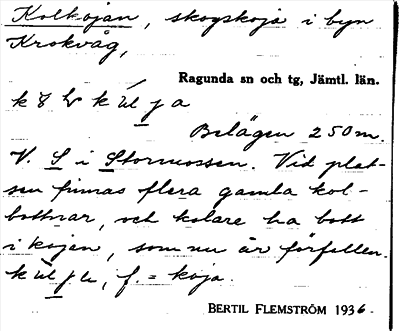 Kolkojan, skogskoja i byn
Krokvåg,
Ragunda sn och tg, Jämtl. län.
Belägen 250 m.
V. S i Stormossen. Vid plat-
sen finnas flera gamla kol-
bottnar, och kolare ha bott
i kojan, som nu är förfallen.
f. = koja.
BERTIL FLEMSTRÖM 1936.